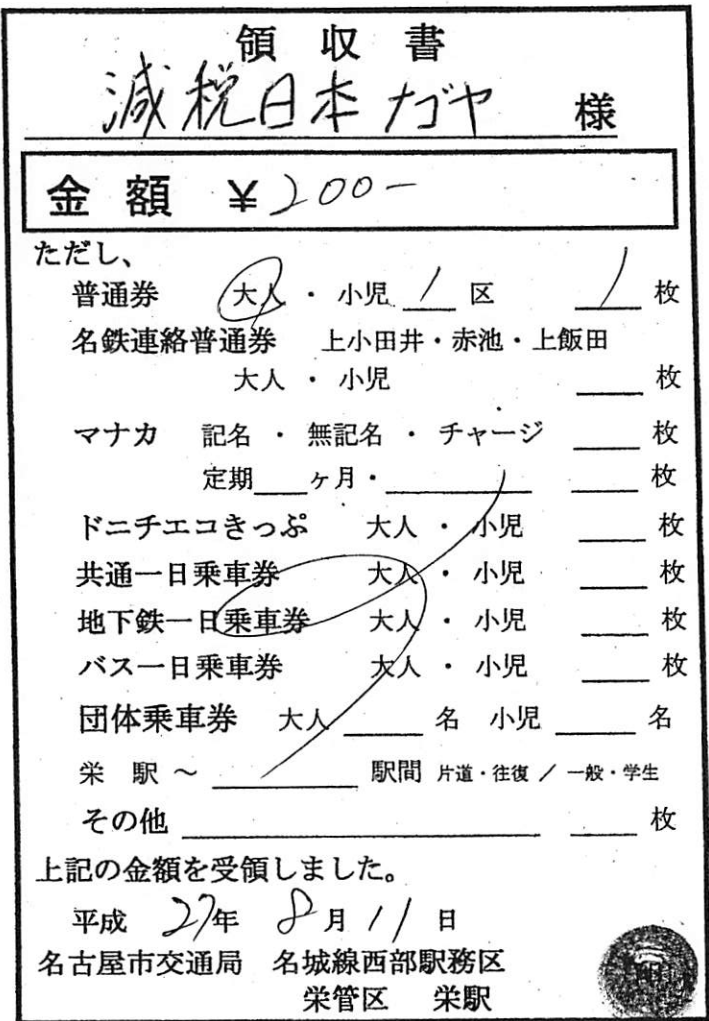 領収書
減税日本ナゴヤ 様
金額 ¥200-
ただし、
普通券 大人・小児 1 区 1 枚
名鉄連絡普通券 上小田井・赤池・上飯田
大人・小児 枚
マナカ 記名・無記名・チャージ 枚
定期 ヶ月・ 枚
ドニチエコきっぷ 大人・小児 枚
共通一日乗車券 大人・小児 枚
地下鉄一日乗車券 大人・小児 枚
バス一日乗車券 大人・小児 枚
団体乗車券 大人 名 小児 名
栄 駅~ 駅間 片道・往復/一般・学生
その他 枚
上記の金額を受領しました。
平成 27年 8月 11日
名古屋市交通局 名城線西部駅務区
栄管区 栄駅